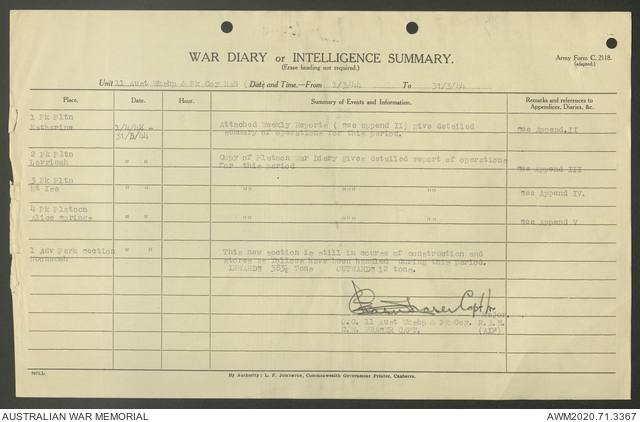 WAR DIARY or INTELLIGENCE SUMMARY.
(Erase heading not required.)
Army Form C. 2118.
(adapted.)
Unit 11 Aust Wkshp & Pk Coy RAE ( Date and Time.—From 1/3/44 To 31/3/44
Place. Date. Hour. Summary of Events and Information. Remarks and references to Appendices, Diaries, &c.
1 Pk Pltn
Katherine 1/4/44 - Attached Weekly Reports ( see append II) give detailed see Append. II
31/3/44 summary of operations for this period.
2 Pk Pltn Copy of Platoon War Diary gives detailed report of operations
Larrimah " " for this period see Append III
3 Pk Pltn
Mt Isa " " "" "" see Append IV.
4 Pk Platoon
Alice Springs " " "" "" see Append V
1 Adv Park section " " This new section is still in course of construction and
Noonamah stores as follows have been handled during this period.
INWARDS 383½ Tons OUTWARDS 12 tons.
Capt
Major.
O.C. 11 Aust Wkshp & Pk Coy. R.A.E.
G.W. FRAZER CAPT. (AIF)
By Authority: L. F. Johnston, Commonwealth Government Printer, Canberra.
AUSTRALIAN WAR MEMORIAL
AWM2020.71.3367